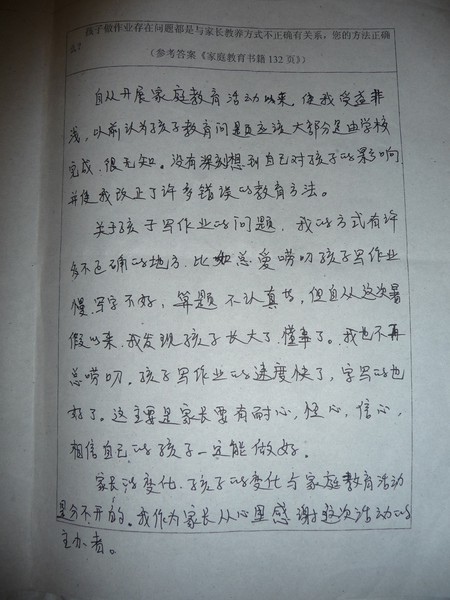 孩子做作业存在问题都是与家长教养方式不正确有关系,您的方法正确
么?
(参考答案《家庭教育书籍132页》)
自从开展家庭教育活动以来,使我受益非
浅,以前认为孩子教育问题应该大部分是由学校
完成,很无知。没有深刻想到自己对孩子的影响
并使我改正了许多错误的教育方法。
关于孩子写作业的问题,我的方式有许
多不正确的地方,比如总爱唠叨孩子写作业
慢,写字不好,算题不认真等,但自从这次暑
假以来,我发现孩子长大了,懂事了。我也不再
总唠叨。孩子写作业的速度快了,字写的也
好了。这主要是家长要有耐心,恒心,信心,
相信自己的孩子一定能做好。
家长的变化、孩子的变化与家庭教育活动
是分不开的。我作为家长从心里感谢这次活动的
主办者。